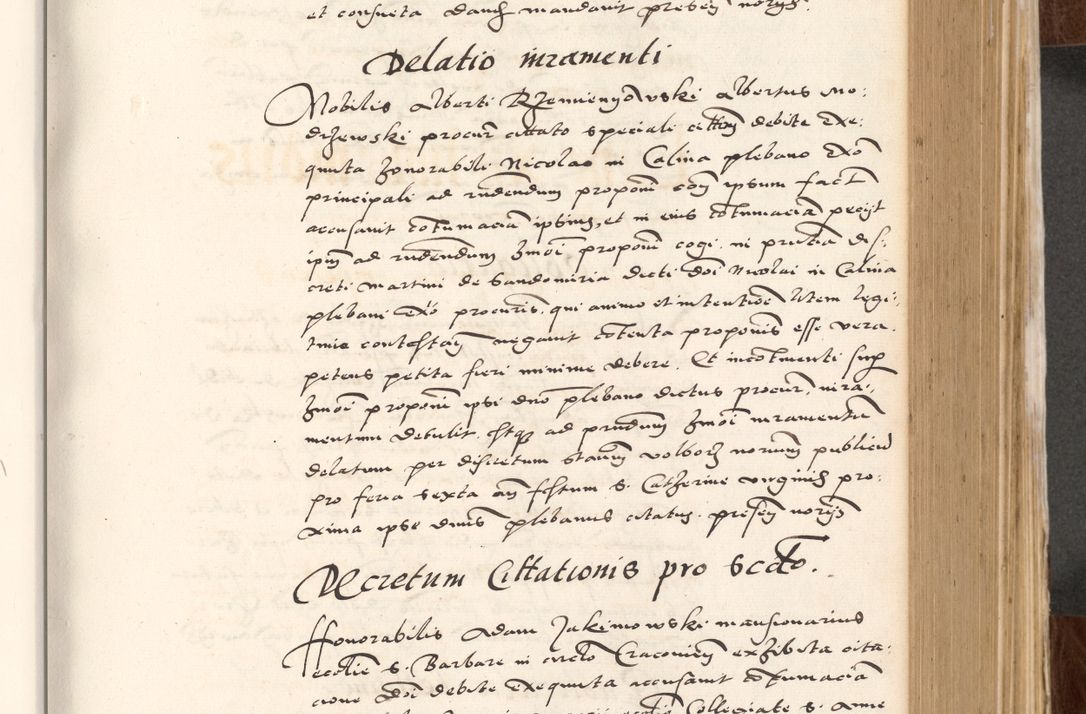 et consueta dand mandavit presen norijs
Delatio iuramenti
Nobilis Alberti Rzemienyowski Albertus Mo:
drzewski procur cittato speciali cittem debite exe:
quuta honorabili Nicolao in Calina plebano exo
principali ad rudendum proponi com ipsum fact
accusavit cotumacia ipsius, et in eius cotumacia peciyt
ipm ad rudendum hmoi proponi cogi. in pretia dis:
creti Martini de Sandomiria dicti doi Nicolai in Calina
plebani exo procuris. qui animo et intentioe litem legi:
time contestan negavit cotenta proponis esse vera.
petens petita fieri minime debere. Et incotinenti sup
hmoi proponi ipsi dno plebano dictus procur, iura:,
mentum detulit. estque ad prudum hmoi iuramentu
delatum per discretum Stanm volborz norium publicu
pro feria sexta an festum S. Catherine virginis pro:
xima ipse dnus plebanus citatus. presen norijs
Decretum Cittationis pro scdo.
Honorabilis Adam Jakimowski mansionarius
ecclie S. Barbare in circlo Cracovien exhibita cita:
cione doi debite exequuta accusavit cotumacia
Collegiate S. Anne